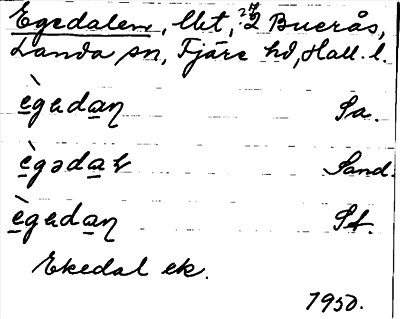 Egedalen, lht, 27/2 Buerås,
Landa sn, Fjäre hd, Hall. l.
ègadaɳ Sa.
ègədaɫ Sand.
ègadaɳ Sf.
Ekedal ek.
1950.